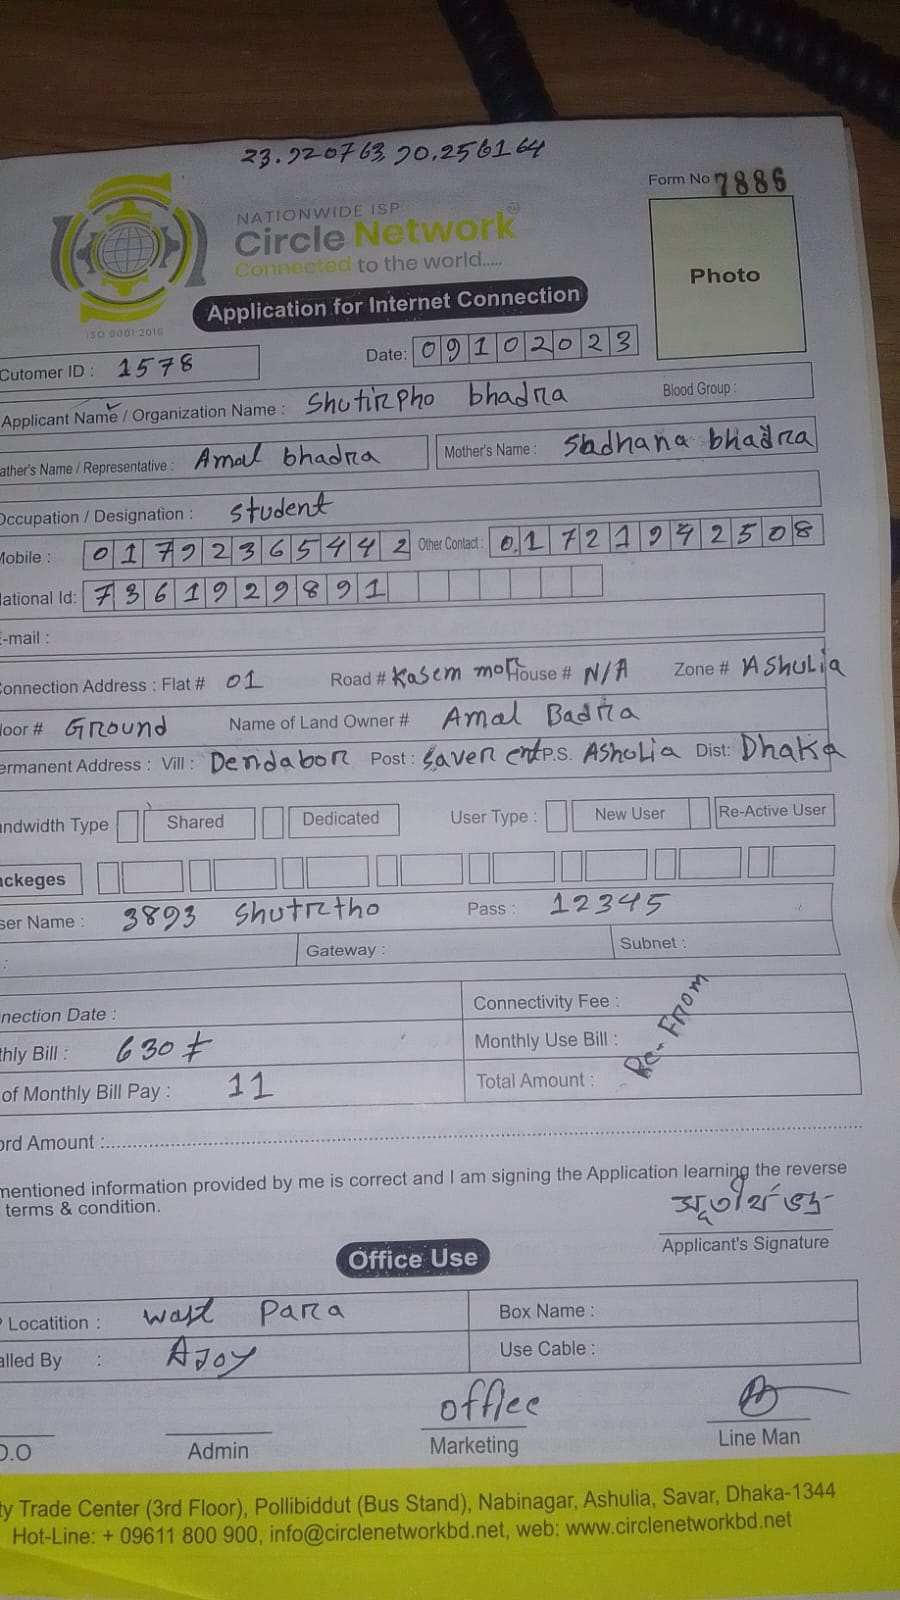 23.920763,90.256164
Form No 7886
NATIONWIDE ISP
Circle Network
Connected to the world.....
ISO 9001:2015
Photo
Application for Internet Connection
Cutomer ID : 1578 Date: 09102023
Applicant Name / Organization Name : Shutirpho bhadra Blood Group :
ather's Name / Representative : Amal bhadra Mother's Name : Sadhana bhadra
Occupation / Designation : Student
Mobile : 01792365442 Other Contact : 01721942508
ational Id: 7361929891
E-mail :
onnection Address : Flat # 01 Road # Kasem mor House # N/A Zone # Ashulia
loor # Ground Name of Land Owner # Amal Badra
ermanent Address : Vill : Dendabor Post : Saver cnt P.S. Ashulia Dist: Dhaka
ndwidth Type Shared Dedicated User Type : New User Re-Active User
ckeges
ser Name : 3893 Shutrtho Pass : 12345
: Gateway : Subnet :
nection Date : Connectivity Fee :
thly Bill : 630 ৳ Monthly Use Bill :
of Monthly Bill Pay : 11 Total Amount :
Re-From
ord Amount :
mentioned information provided by me is correct and I am signing the Application learning the reverse
terms & condition.
Applicant's Signature
Office Use
P Locatition : wast Para Box Name :
alled By : AJoy Use Cable :
office
D.O Admin Marketing Line Man
ty Trade Center (3rd Floor), Pollibiddut (Bus Stand), Nabinagar, Ashulia, Savar, Dhaka-1344
Hot-Line: + 09611 800 900, info@circlenetworkbd.net, web: www.circlenetworkbd.net